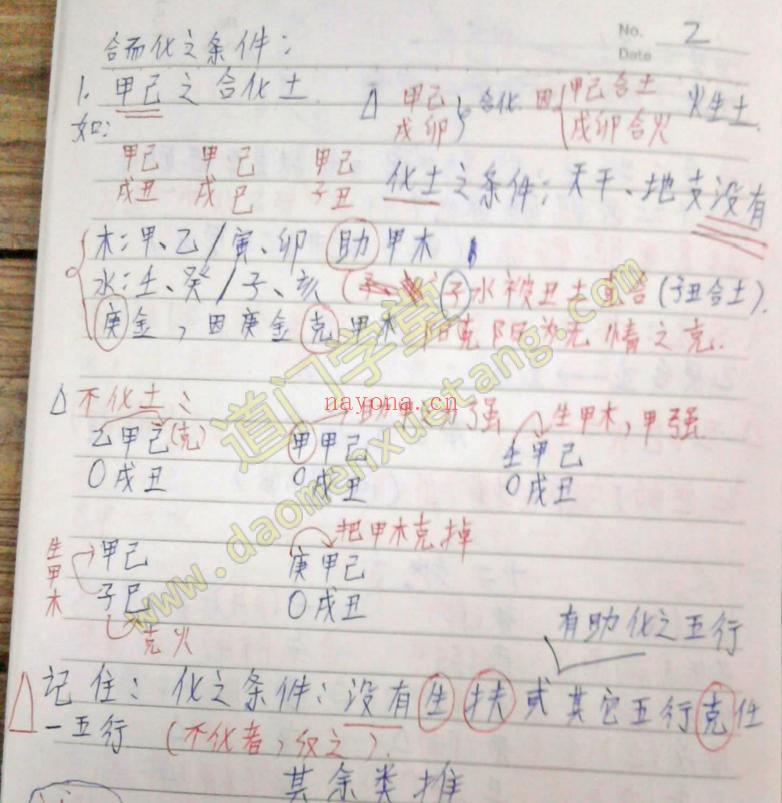 No. 2
Date
合而化之条件：
1. 甲己之合化土
△ 甲己 戊卯 } 合化 因 { 甲己合土 戊卯合火 火生土
如：
甲己 甲己 甲己
戌丑 戌巳 子丑
化土之条件：天干、地支没有
木：甲、乙/寅、卯 助甲木
水：壬、癸/子、亥 子水被丑土 (子丑合土)
庚金，因庚金克甲木 阳克阳为无情之克.
△ 不化土：
乙甲己(克) 甲甲己 强 壬甲己 生甲木，甲强
0戌丑 0戌丑 0戌丑
生甲木 甲己 庚甲己 把甲木克掉
子巳 0戌丑
克火
有助化之五行
△ 记住：化之条件：没有生扶或其它五行克任
一五行 (不化者，反之).
其余类推
道门学堂
nayona.cn
www.daomenxuetang.com